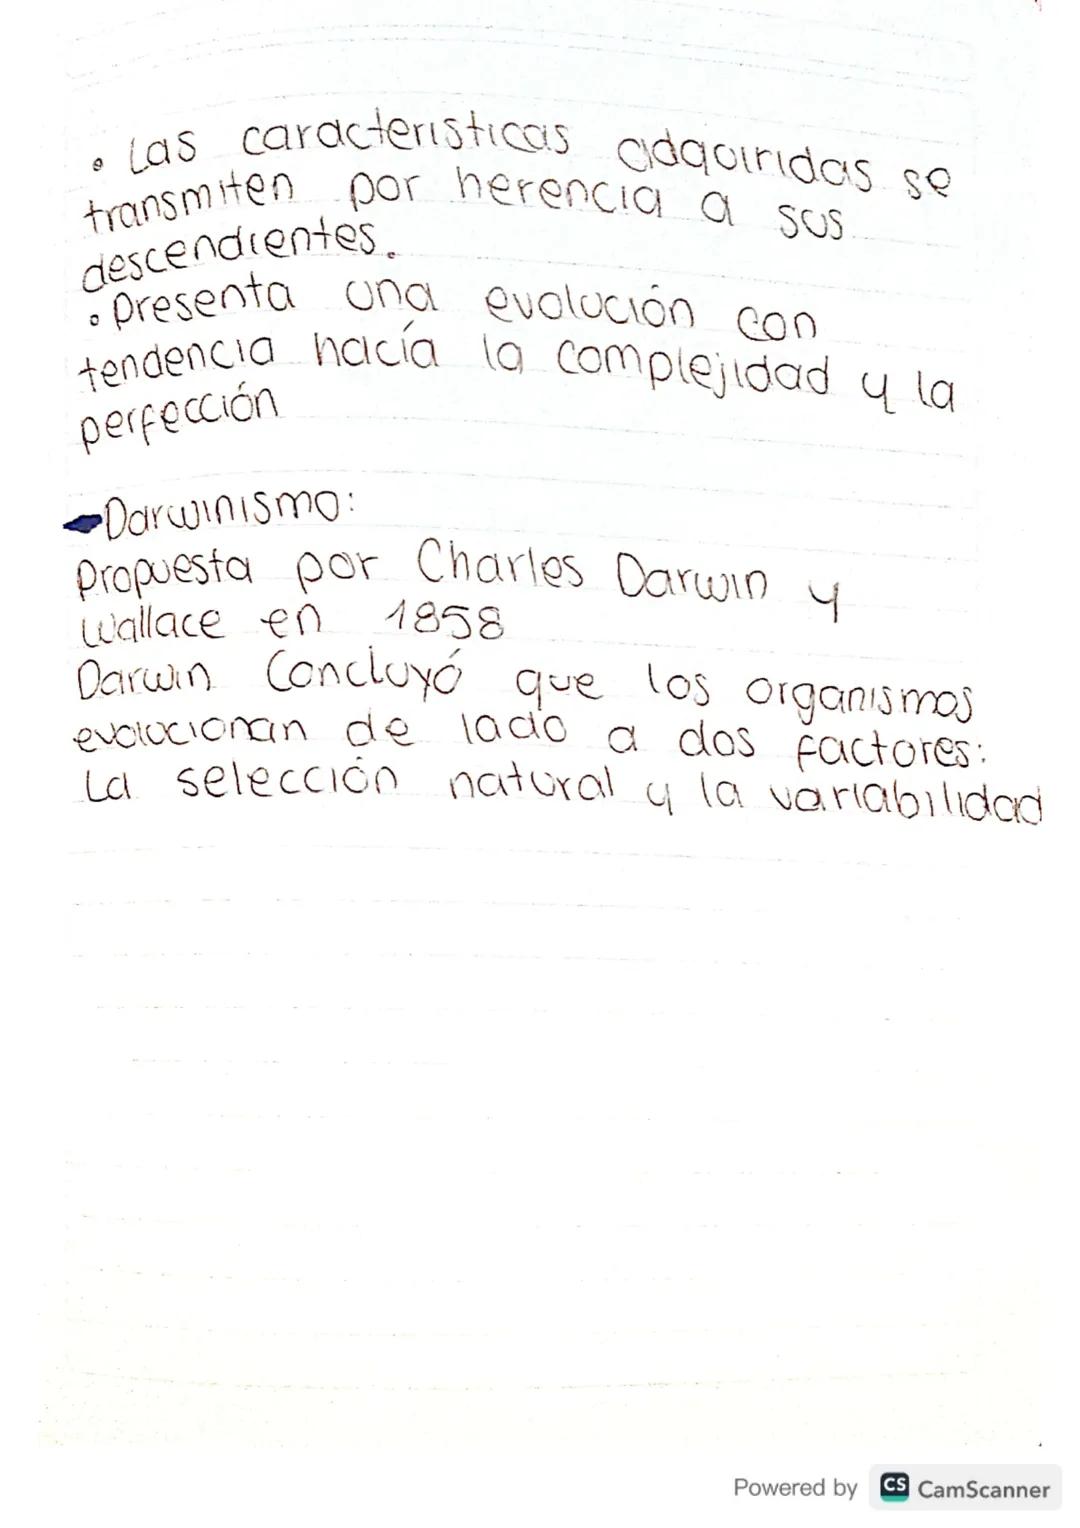 • Las caracteristicas adquiridas se
transmiten por herencia a sus
descendientes.
• Presenta una evolución con
tendencia hacía la complejidad y la
perfección
Darwinismo:
Propuesta por Charles Darwin y
Wallace en 1858
Darwin Concluyó que los organismos
evolucionan de lado a dos factores:
La selección natural y la variabilidad
Powered by CS CamScanner